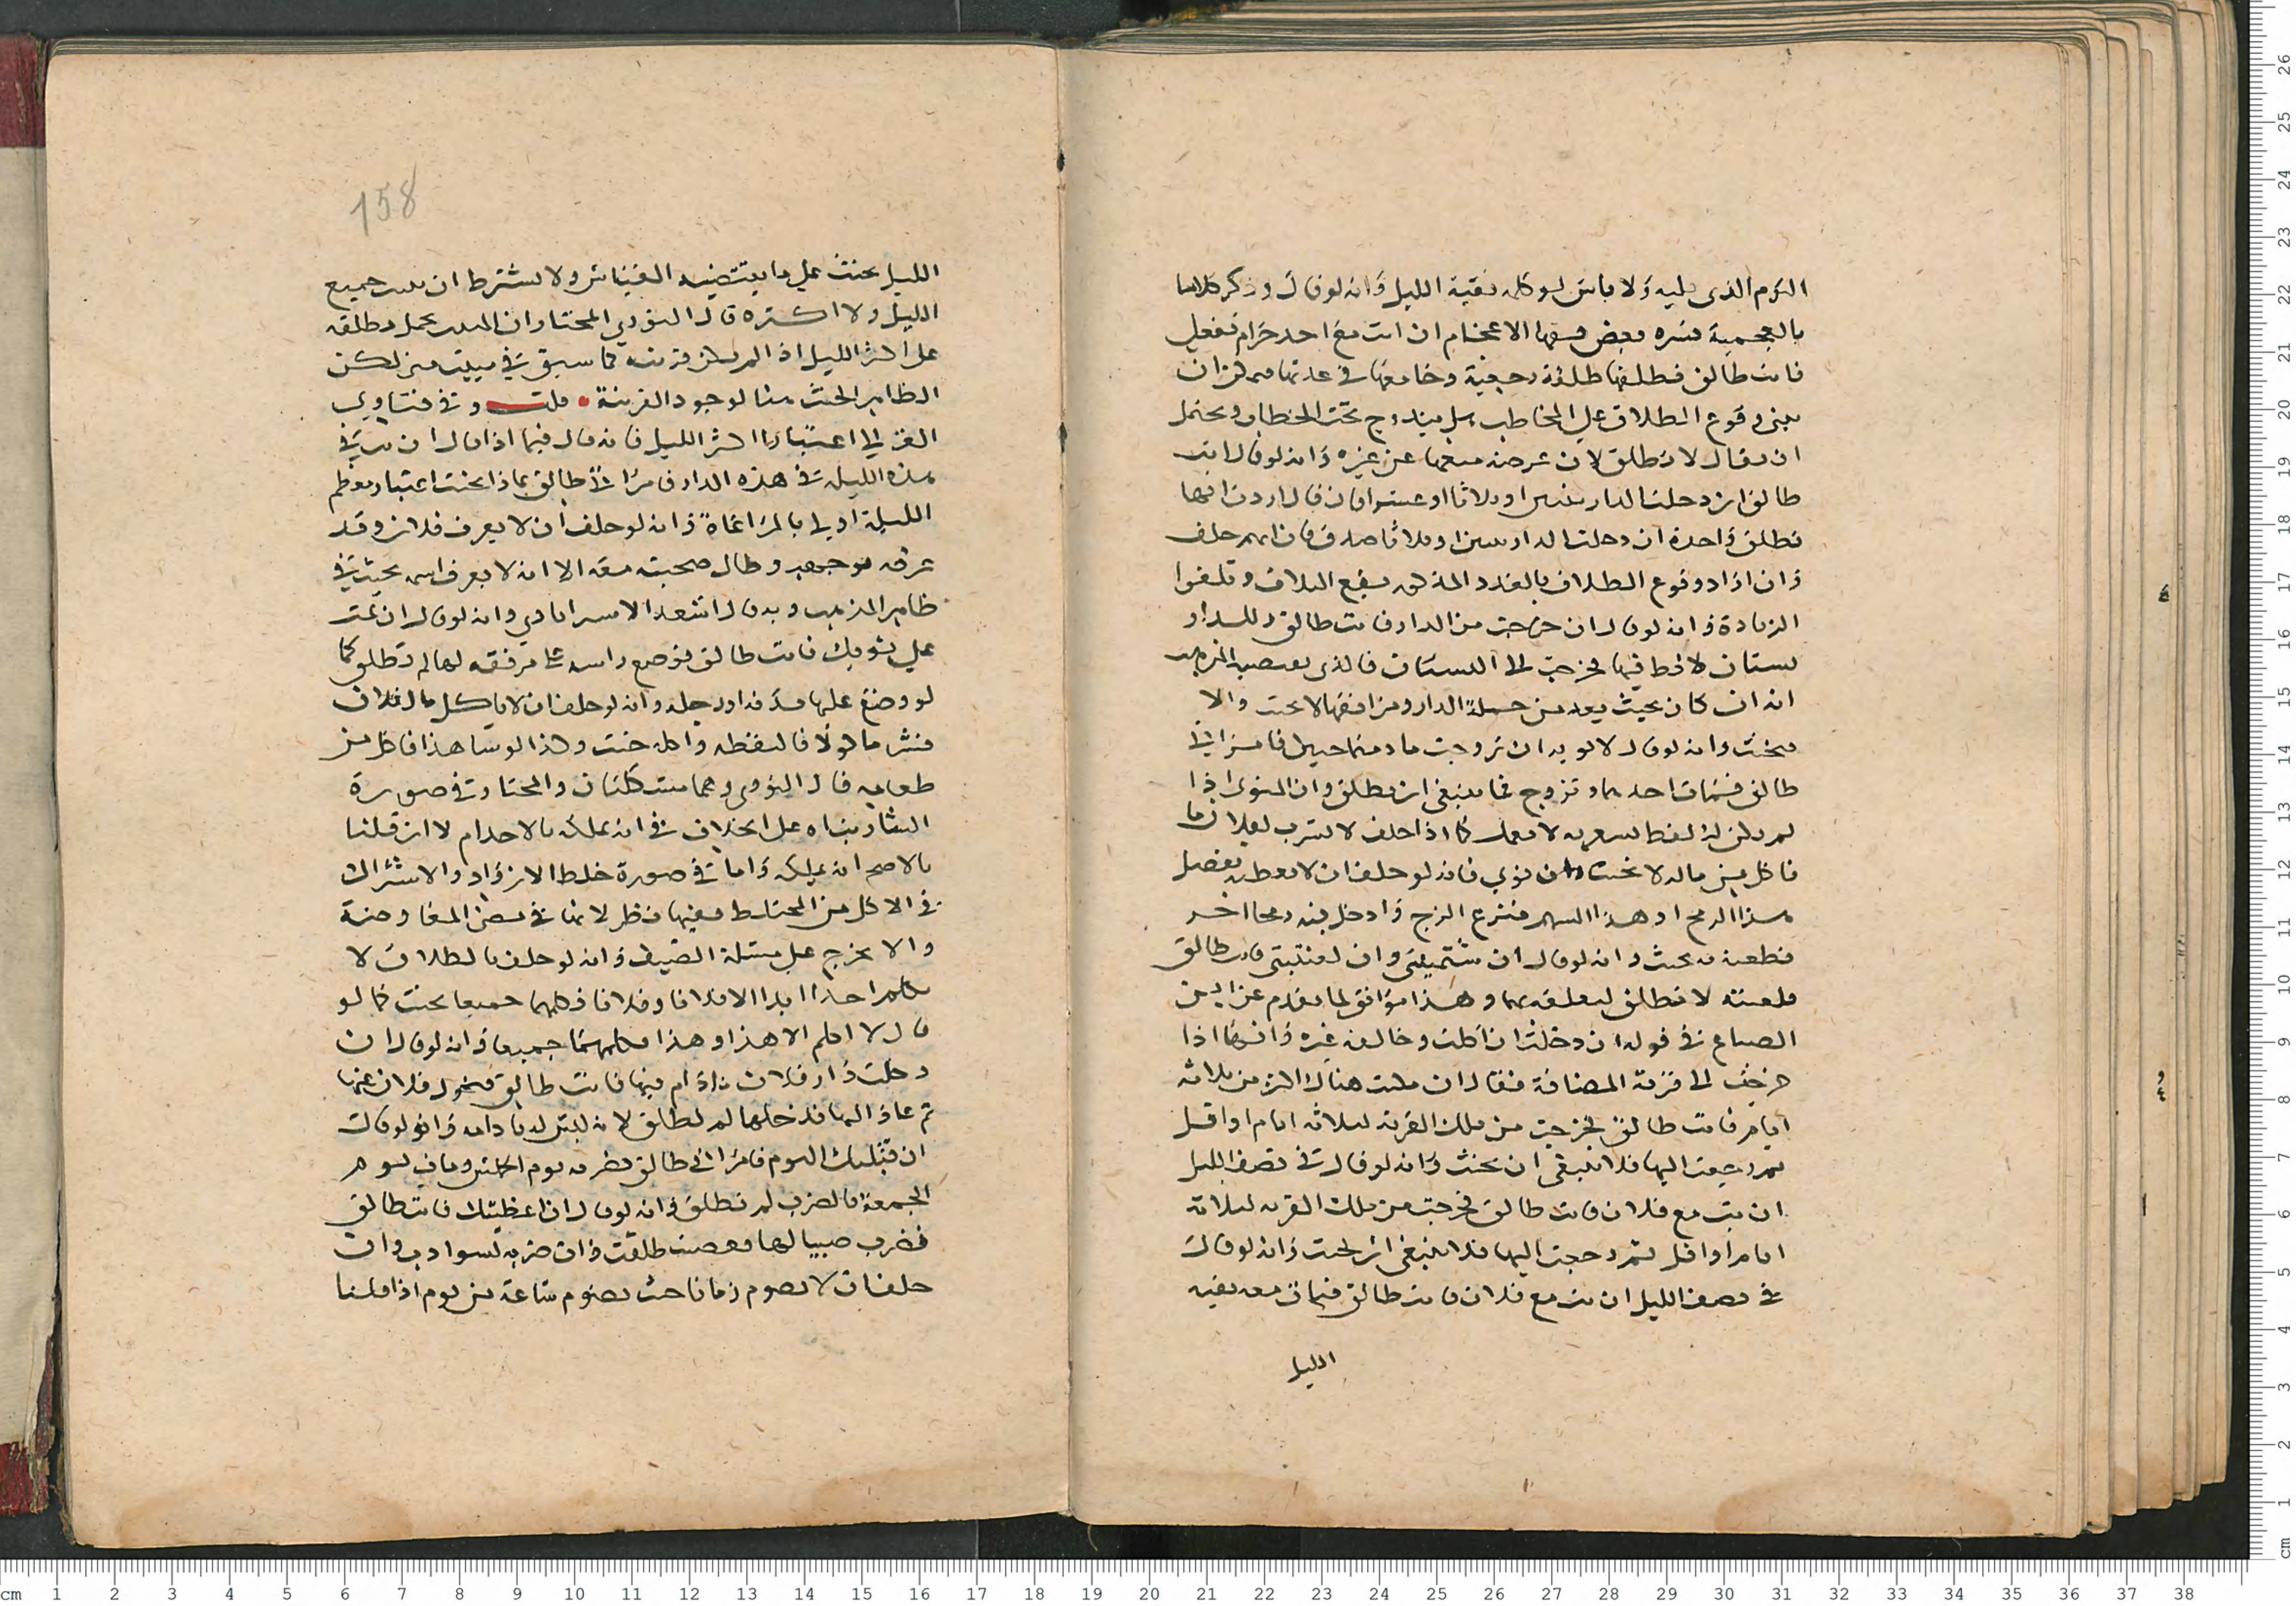 اليوم الذي يليه ولا باس لو كله بقية الليل وانه لو قال وذكر كلاما
بالعجمية فسره بعض فقها الاعجام ان انت مع احد حرام تفعلي
فانت طالق فطلقها طلقة رجعية وجامعها في عدتها
يعني وقوع الطلاق علي المخاطب بل يندرج تحت الخطاب ويحتمل
ان يقال لا تطلق لان غرضه منعها عن غيره وانه لو قال انت
طالق ان دخلت الدار ثنتين او ثلاثا او عشرا فان قال اردت انها
تطلق واحدة ان دخلت الدار ثنتين او ثلاثا صدق فان اتهم حلف
وان اراد وقوع الطلاق بالعدد المذكور يقع الثلاث وتلغوا
الزيادة وانه لو قال ان خرجت من الدار فانت طالق وللدار
بستان لاخط فيها فخرجت الى البستان فالذي يقتضيه المذهب
انه ان كان بحيث يعد من جملة الدار ومرافقها لا يحنث والا
يحنث وانه لو قال لابويه ان تزوجت ما دمتما حيين فامراتي
طالق فمات احدهما وتزوج فما ينبغي ان تطلق وان المنوي اذا
لم يكن لا لفظ يشعر به لا يعمل كما اذا حلف لا يشرب لفلان ما
فاكل من ماله لا يحنث وان نوي فانه لو حلف ان لا يعطيه نصل
هذا الرمح او هذا السهم فنزع الزج وادخل فيه رمحا اخر
فطعنه به يحنث وانه لو قال ان شتمتيني وان لعنتيني فانت طالق
فلعنته لا تطلق لتعلقه بهما وهذا موافق لما تقدم عن ابن
الصباغ في قوله ان دخلت ان اكلت وخالفه غيره وانها اذا
خرجت الى قرية المضافة فقال ان مكثت هناك اكثر من ثلاثة
ايام فانت طالق فخرجت من تلك القرية لثلاثة ايام او اقل
ثم رجعت اليها فلا ينبغي ان يحنث وانه لو قال في نصف الليل
ان بت مع فلان فانت طالق فخرجت من تلك القرية لثلاثة
ايام او اقل ثم رجعت اليها فلا ينبغي ان يحنث وانه لو قال
في نصف الليل ان بت مع فلان فانت طالق فبات معه بقية
الليل
158
الليل يحنث علي ما يقتضيه القياس ولا يشترط ان يبيت جميع
الليل ولا اكثره قال النووي المختار ان المبيت يحمل مطلقه
على اكثر الليل اذا لم يكن قرينة كما سبق في مبيت منى لكن
الظاهر الحنث هنا لوجود القرينة • قلت وفي فتاوي
الغزالي اعتبار اكثر الليل فانه قال فيما اذا قال ان بت في
هذه الليلة في هذه الدار فامراتي طالق بماذا يحنث اعتبار معظم
الليلة اولى بالمراعاة وانه لو حلف ان لا يعرف فلانا وقد
عرفه بوجهه وطال صحبته معه الا انه لا يعرف اسمه يحنث في
ظاهر المذهب وبه قال اسعد الاسترابادي وانه لو قال ان نمت
علي ثوبك فانت طالق فوضع راسه على مرفقة لها لم تطلق كما
لو وضع عليها يديه او رجله وانه لو حلف ان لا ياكل مال فلان
فنثر ماكولا فالتقطه واكله حنث وكذا لو تناهدا فاكل من
طعامه قال النووي وهما مشكلتان والمختار في صورة
النثار بناه على الخلاف في انه يملكه بالاخذ ام لا ان قلنا
بالاصح انه يملكه واما في صورة خلط الازواد والاشتراك
في الاكل من المختلط ففيها نظر لانها في معنى المعاوضة
والا يخرج على مسئلة الضيف وانه لو حلف بالطلاق لا
يكلم احدا ابدا الا فلانا وفلانا فكلمهما جميعا يحنث كما لو
قال لا اكلم الا هذا وهذا فكلمهما جميعا وانه لو قال ان
دخلت دار فلان ما دام فيها فانت طالق فتحول فلان عنها
ثم عاد اليها فدخلها لم تطلق لانه ليس له ما دامه وانه لو قال
ان قبلتك اليوم فامراتي طالق
الجمعة بالضرب لم تطلق وانه لو قال ان اعطيتك فانت طالق
فضرب صبيا لها فغضبت طلقت وان ضربه لسوادب وان
حلف ان لا يصوم زمانا حنث بصوم ساعة من يوم اذا قلنا